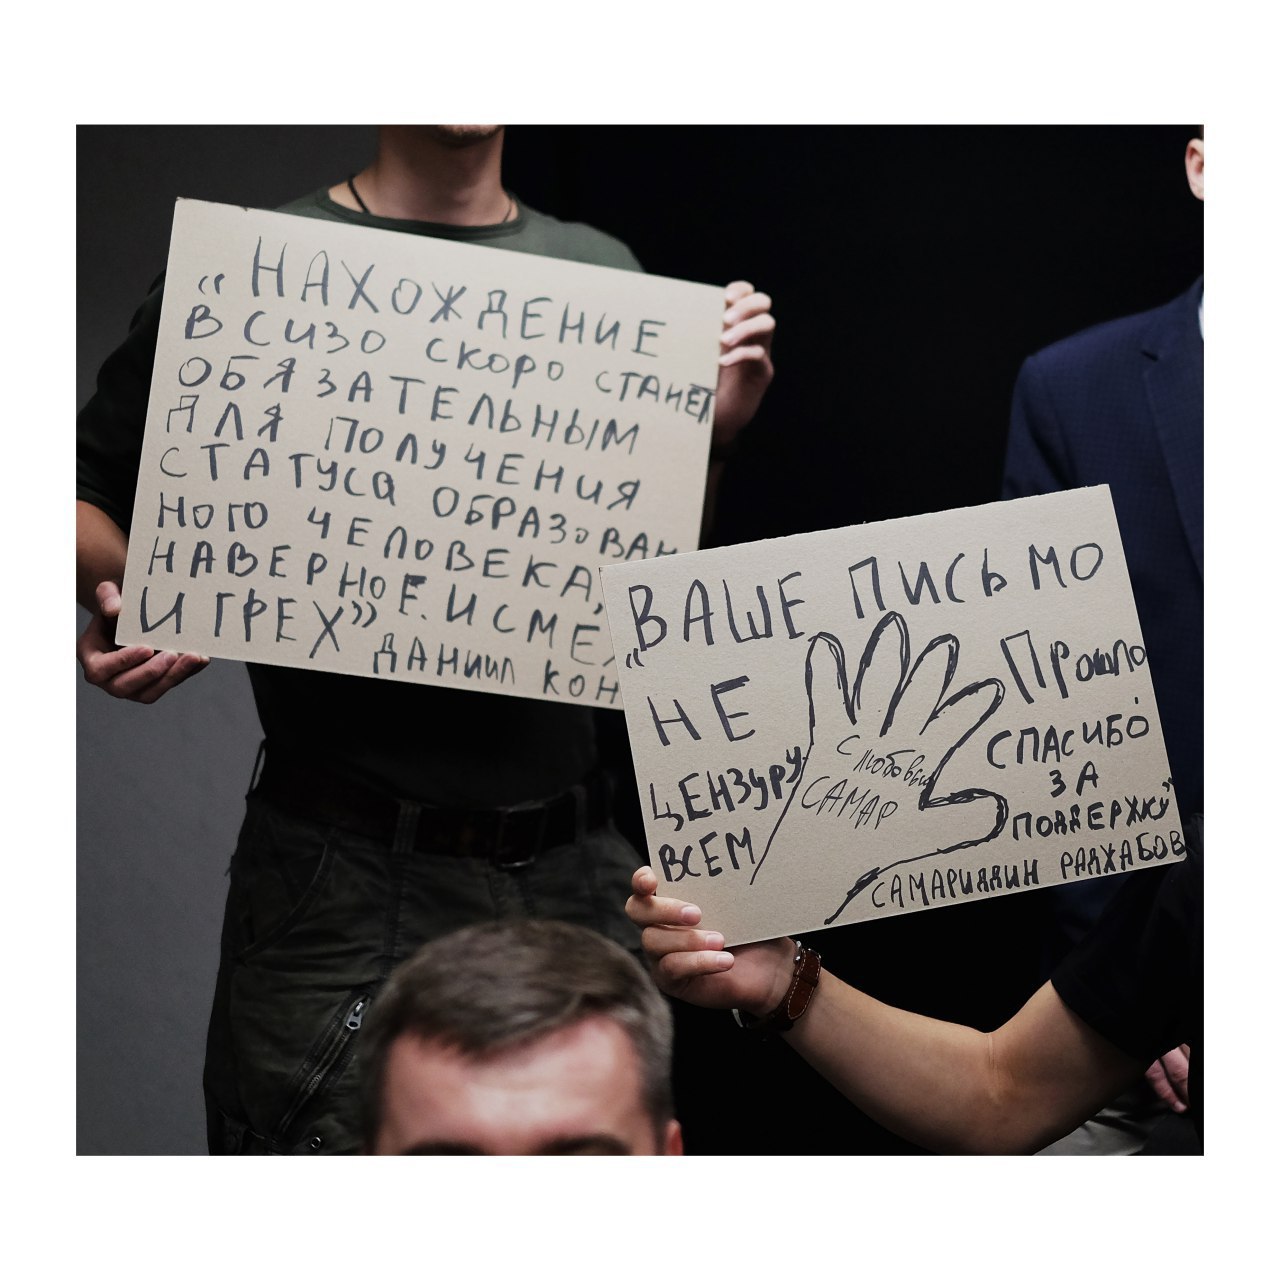 «НАХОЖДЕНИЕ
В СИЗО СКОРО СТАНЕТ
ОБЯЗАТЕЛЬНЫМ
ДЛЯ ПОЛУЧЕНИЯ
СТАТУСА ОБРАЗОВАН
НОГО ЧЕЛОВЕКА,
НАВЕРНОЕ. И СМЕ
И ГРЕХ»
ДАНИИЛ КОН
"ВАШЕ ПИСЬМО
НЕ ПРОШЛО
ЦЕНЗУРУ
ВСЕМ
СПАСИБО
ЗА
ПОДДЕРЖКУ"
С любовью
САМАР
САМАРИДДИН РАДЖАБОВ